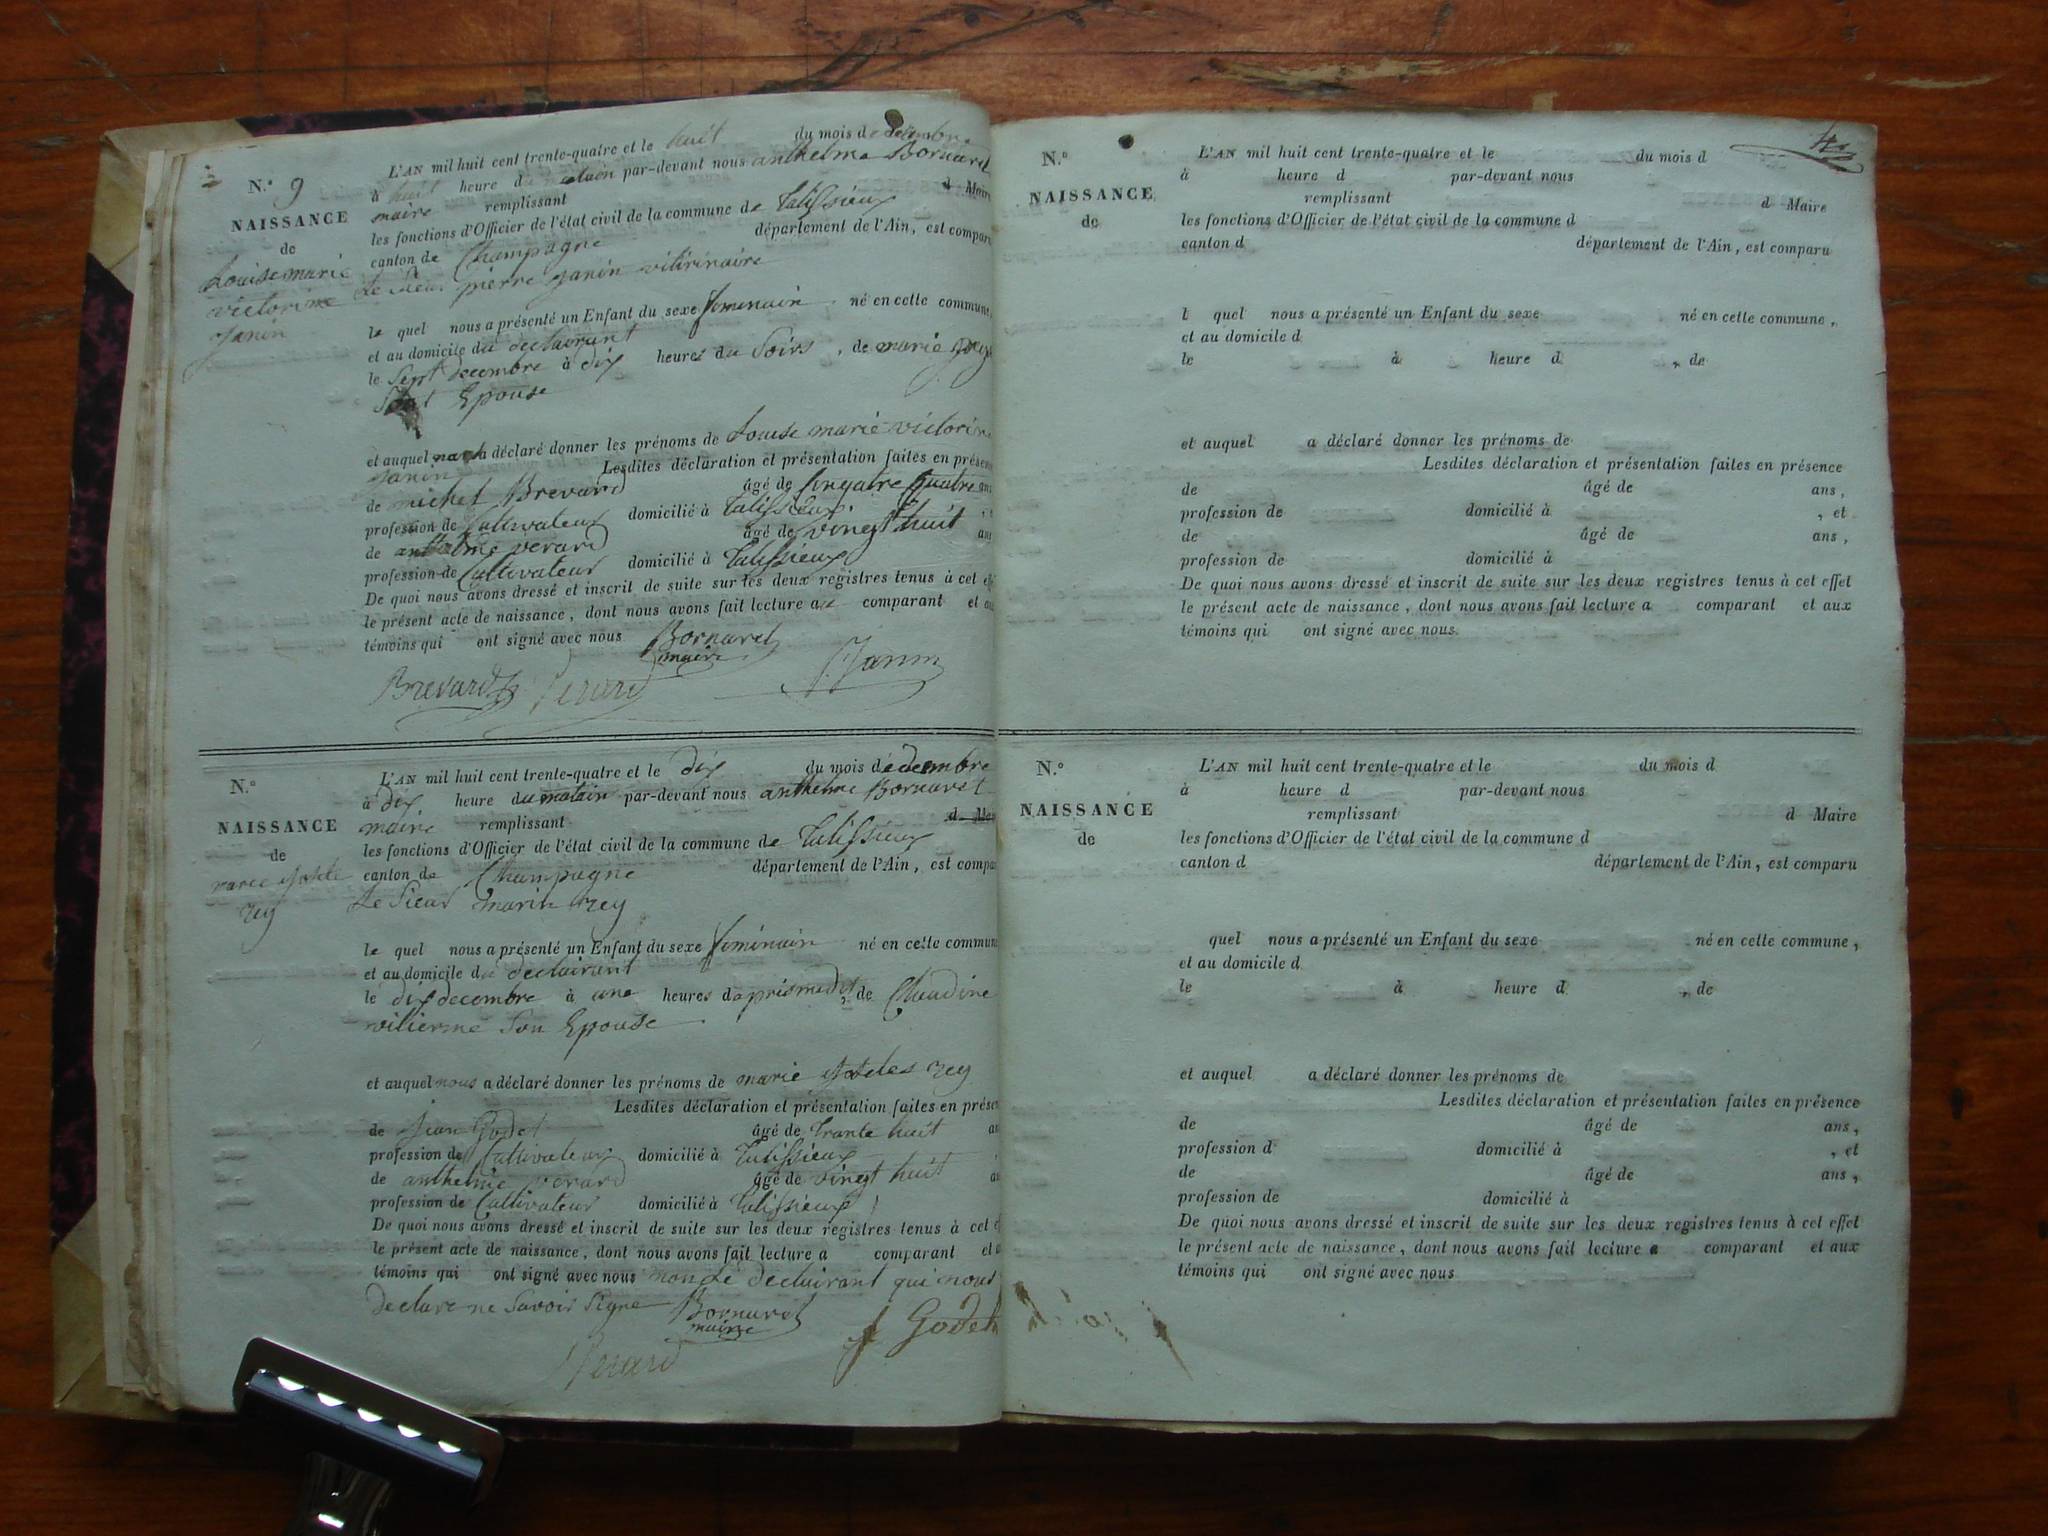 N.° 9
NAISSANCE
de
Louise marie
victorine
Janin
L'AN mil huit cent trente-quatre et le huit du mois de decembre
à huit heure du matin par-devant nous anthelme Bornaret
maire remplissant d Maire
les fonctions d'Officier de l'état civil de la commune de Talissieux
canton de Champagne département de l'Ain, est comparu
Le sieur pierre Janin vitirinaire
le quel nous a présenté un Enfant du sexe feminain né en cette commune,
et au domicile du declairant
le Sept decembre à dix heures du Soirs, de marie
Son Epouse
et auquel nous a déclaré donner les prénoms de Louise marie victorine
Janin Lesdites déclaration et présentation faites en présence
de michel Brevard âgé de Cinquatre quatre ans
profession de Cultivateur domicilié à Talissieux, et
de anthelme verard âgé de vingt huit ans
profession de Cultivateur domicilié à Talissieux
De quoi nous avons dressé et inscrit de suite sur les deux registres tenus à cet effet
le présent acte de naissance, dont nous avons fait lecture au comparant et aux
témoins qui ont signé avec nous Bornaret
maire
Brevard Verard Janin
N.°
NAISSANCE
de
rey
L'AN mil huit cent trente-quatre et le dix du mois de decembre
à dix heure du matain par-devant nous anthelme Bornaret
maire remplissant d Mai
les fonctions d'Officier de l'état civil de la commune de Talissieux
canton de Champagne département de l'Ain, est compa
Le Sieur marin rey
le quel nous a présenté un Enfant du sexe feminain né en cette commune
et au domicile du declairant
le dix decembre à une heures daprismedit, de Claudine
vilierme Son Epouse
et auquel nous a déclaré donner les prénoms de marie rey
Lesdites déclaration et présentation faites en présen
de jean Godet âgé de trante huit an
profession de Cultivateur domicilié à Talissieux
de anthelme verard âgé de vingt huit an
profession de Cultivateur domicilié à Talissieux
De quoi nous avons dressé et inscrit de suite sur les deux registres tenus à cet ef
le présent acte de naissance, dont nous avons fait lecture a comparant et a
témoins qui ont signé avec nous non Le declairant qui nous
declare ne Savoir Signe Bornaret
maire
Verard J Godet
N.°
NAISSANCE
de
L'AN mil huit cent trente-quatre et le du mois d
à heure d par-devant nous
remplissant d Maire
les fonctions d'Officier de l'état civil de la commune d
canton d département de l'Ain, est comparu
l quel nous a présenté un Enfant du sexe né en cette commune,
et au domicile d
le à heure d , de
et auquel a déclaré donner les prénoms de
Lesdites déclaration et présentation faites en présence
de âgé de ans,
profession de domicilié à , et
de âgé de ans,
profession de domicilié à
De quoi nous avons dressé et inscrit de suite sur les deux registres tenus à cet effet
le présent acte de naissance, dont nous avons fait lecture a comparant et aux
témoins qui ont signé avec nous.
N.°
NAISSANCE
de
L'AN mil huit cent trente-quatre et le du mois d
à heure d par-devant nous
remplissant d Maire
les fonctions d'Officier de l'état civil de la commune d
canton d département de l'Ain, est comparu
quel nous a présenté un Enfant du sexe né en cette commune,
et au domicile d
le à heure d , de
et auquel a déclaré donner les prénoms de
Lesdites déclaration et présentation faites en présence
de âgé de ans,
profession d domicilié à , et
de âgé de ans,
profession de domicilié à
De quoi nous avons dressé et inscrit de suite sur les deux registres tenus à cet effet
le présent acte de naissance, dont nous avons fait lecture a comparant et aux
témoins qui ont signé avec nous